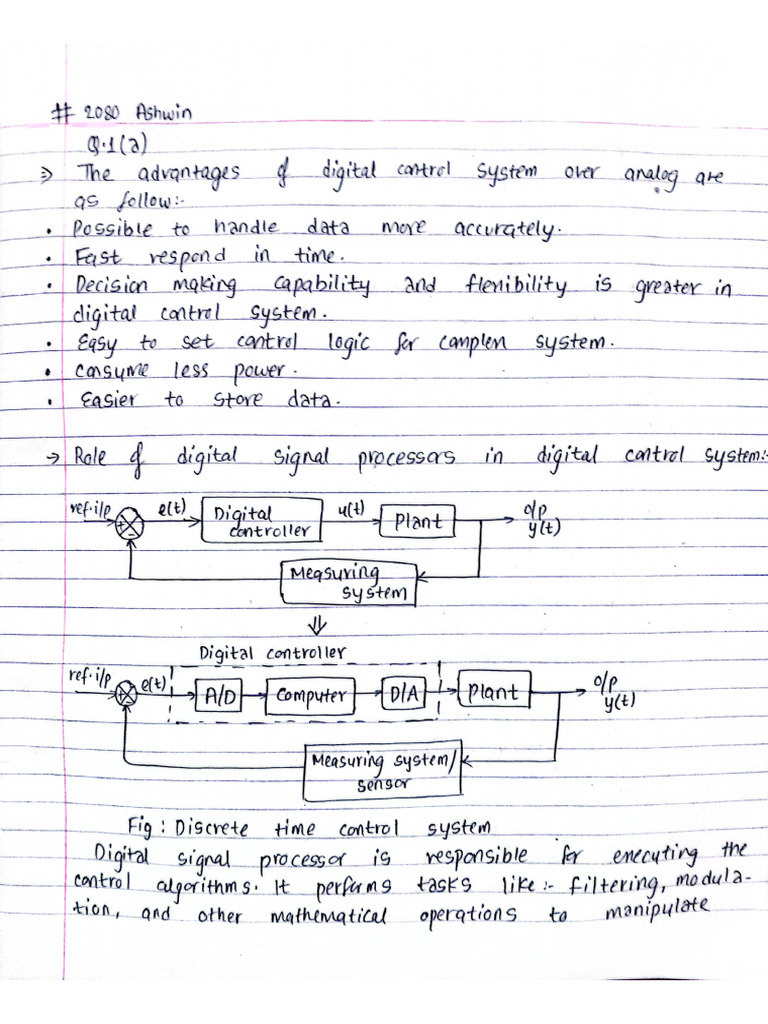 # 2080 Ashwin
Q.1(a)
⇒ The advantages of digital control system over analog are
as follow:-
• Possible to handle data more accurately.
• Fast respond in time.
• Decision making capability and flexibility is greater in
digital control system.
• Easy to set control logic for complex system.
• consume less power.
• Easier to store data.
→ Role of digital signal processors in digital control system:-
ref.i/p + - e(t) Digital controller u(t) Plant o/p y(t)
Measuring system
⇓
Digital controller
ref.i/p + - e(t) A/D Computer D/A Plant o/p y(t)
Measuring system/
sensor
Fig: Discrete time control system
Digital signal processor is responsible for executing the
control algorithms. It performs tasks like:- filtering, modula-
tion, and other mathematical operations to manipulate